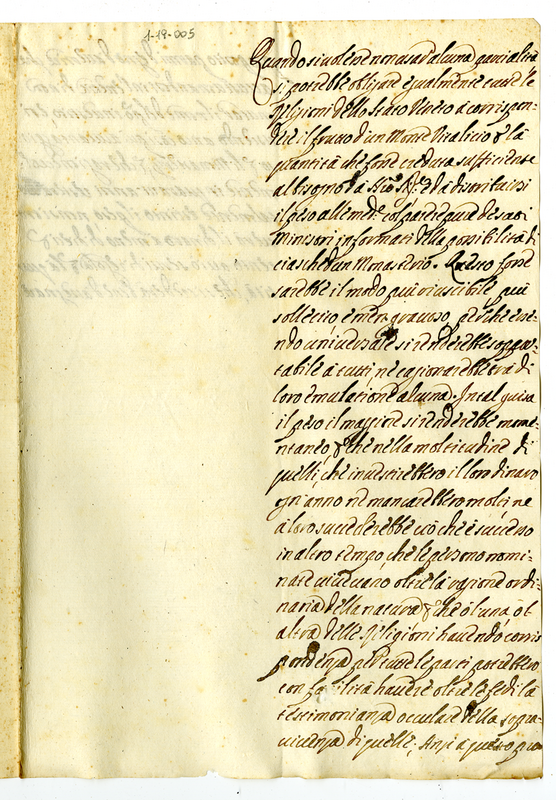 1-19-005
Quando si volesse non usar alcuna parzialità
si potrebbe obligare egualmente tutte le
Religioni dello Stato Veneto a corrispon-
dere il frutto d'un Monte Vitalicio &
quantità che fosse creduta sufficiente
al bisogno da
il peso alle med.e col parere
Ministri informati della possibilità di
ciasched'un Monasterio. Questo forse
sarebbe il modo più riuscibile più
sollecito e men gravoso, perche esse-
ndo universale si renderebbe soppor-
tabile à tutti ne cagionarebbe trà di
loro emulatione alcuna. In tal guisa
il peso il maggiore si renderebbe mome-
ntaneo che nella moltitudine di
quelli, che investirebbero il loro dinaro
ogni anno ne mancarebbero molti ne
a loro succederebbe ciò che è successo
in altro tempo, che le persone nomi-
nate vivevano oltre la ragione ordi-
naria della natura che ò l'una ò l'
altra delle Religioni havendo corris-
pondenza per tutte le parti potrebbero
con facilità havere oltre le fedi la
testimonianza oculare della sopra-
vivenza di quelle; Anzi a questo